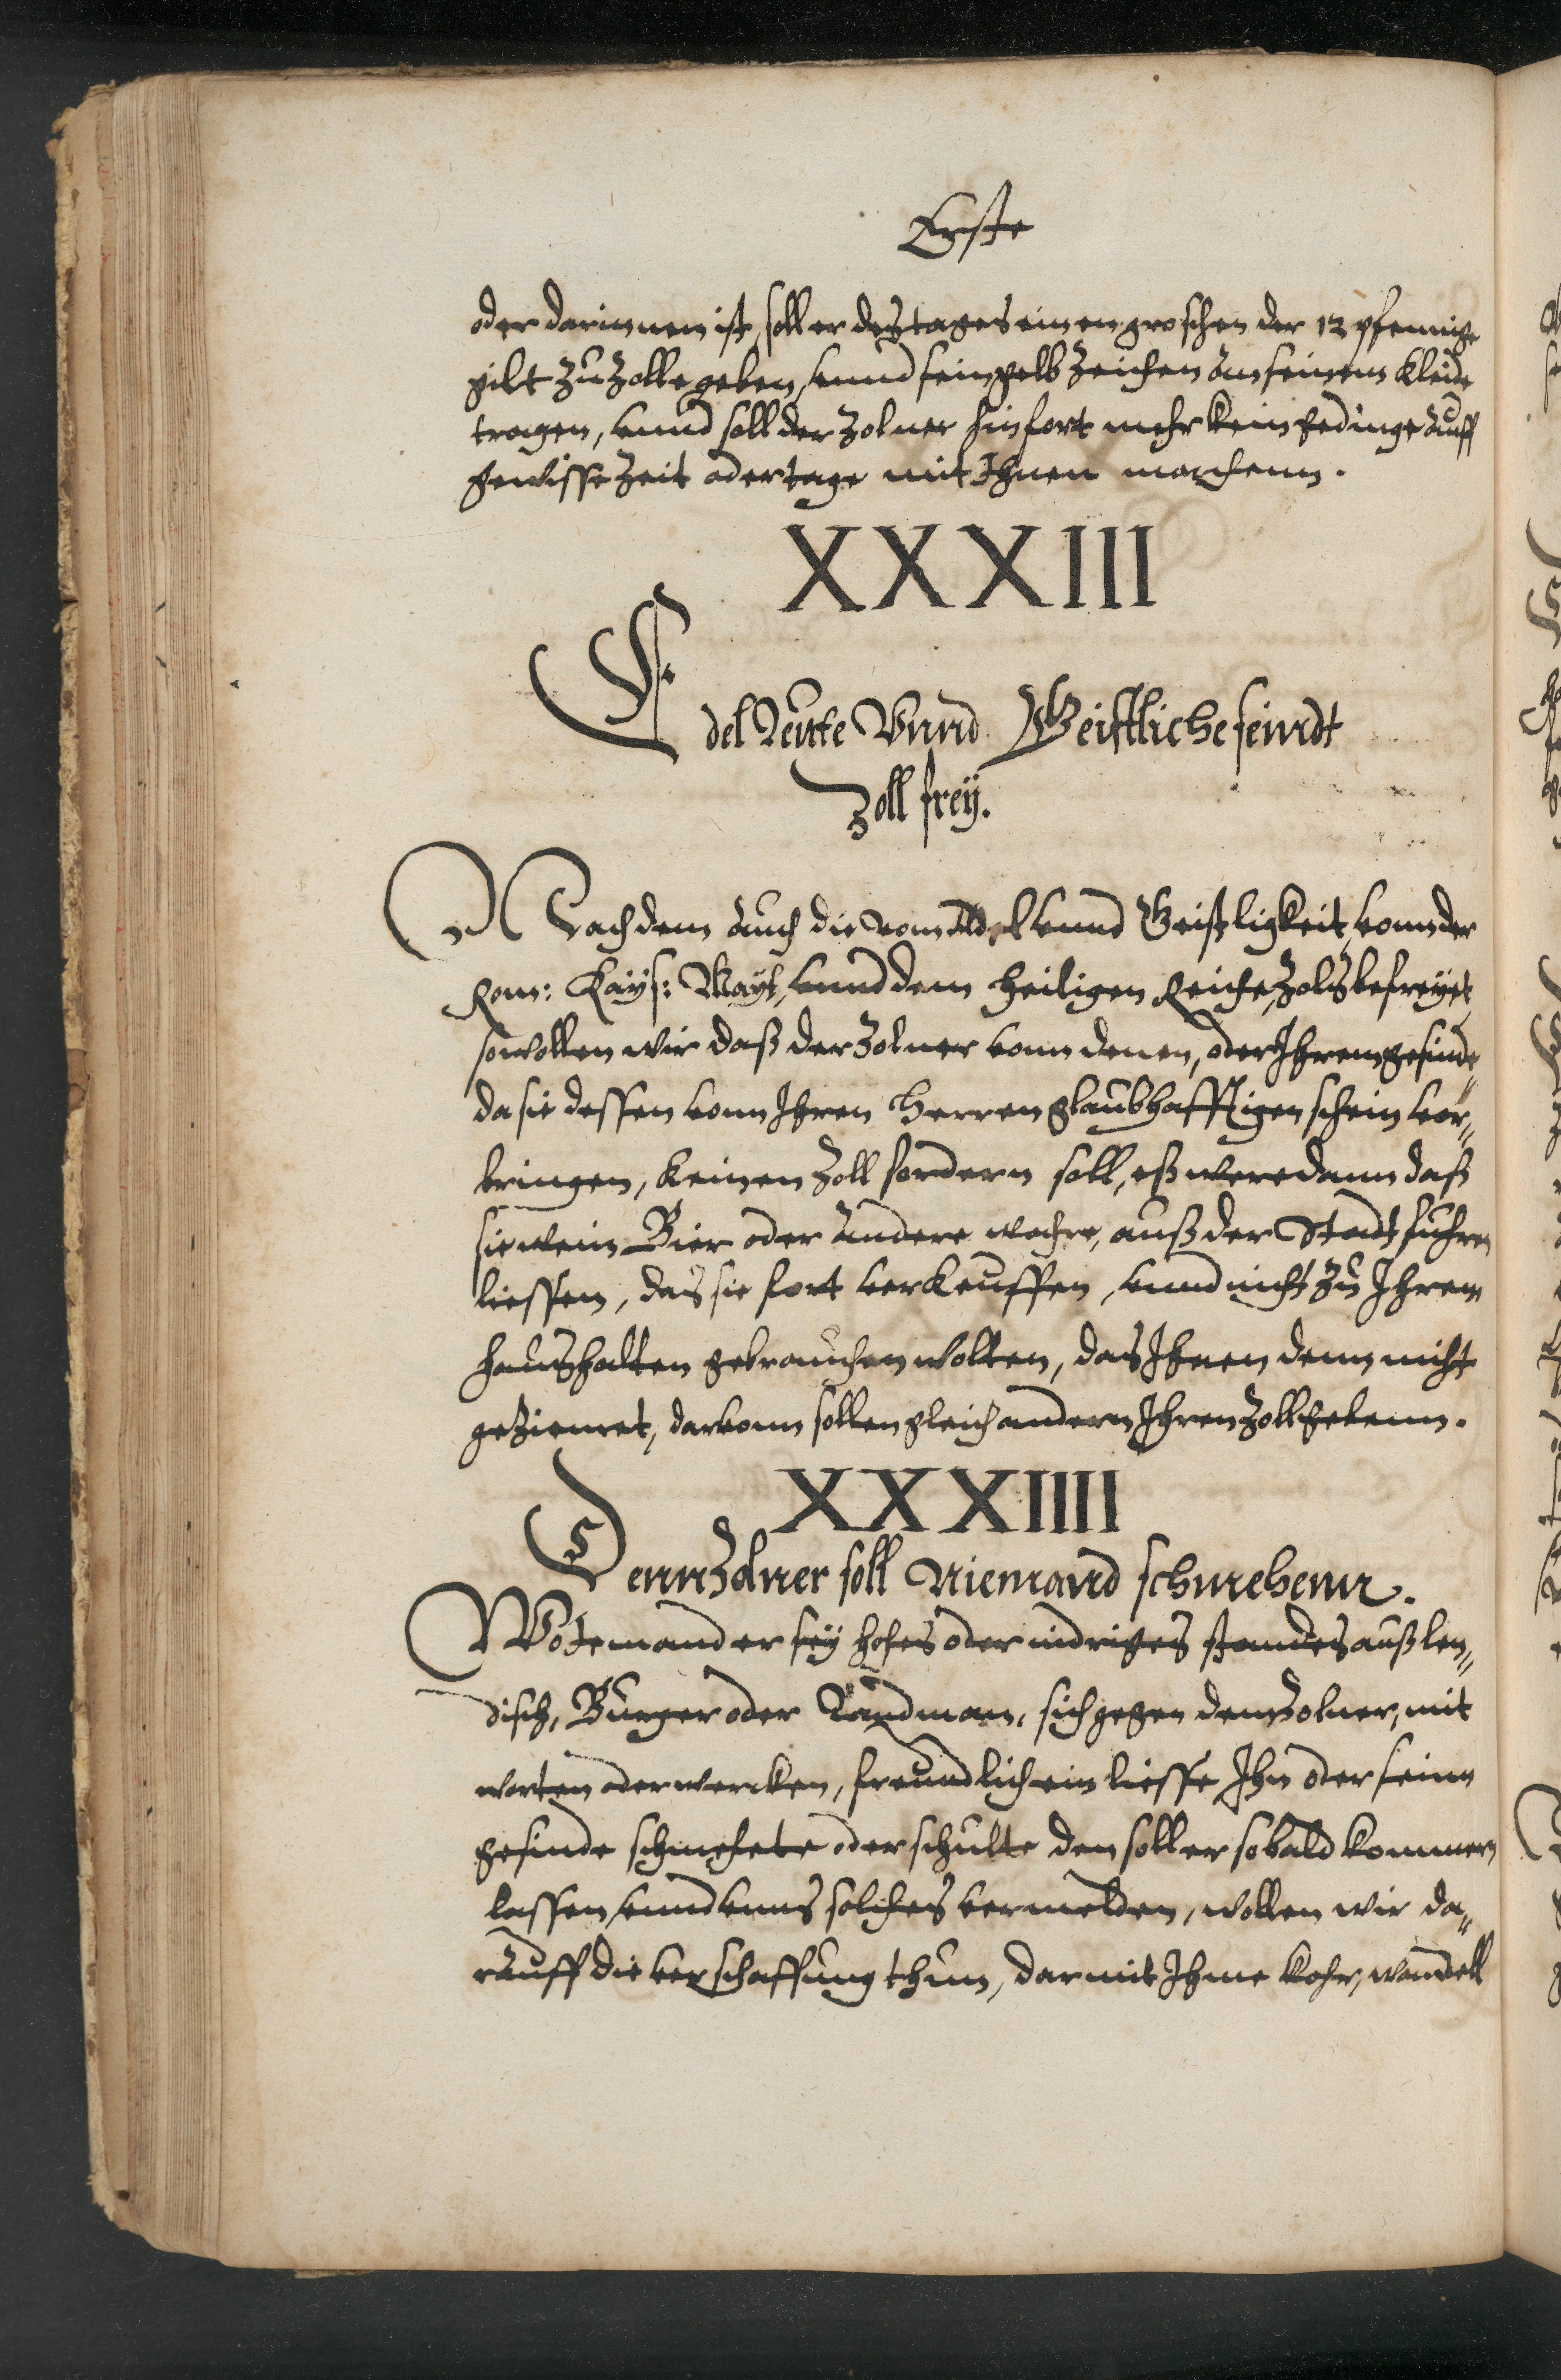 Erste
oder darinnen ist, soll er des tages einen groschen der 12 pfennige
gilt zu Zolle geben, vnnd sein gelb Zeichen an seinem kleide
tragen, vnnd soll der Zolner hinfort mehr kein gedinge auff
gewisse Zeit oder tage mit Ihnen machenn.
XXXIII
Edel Leutte Vnnd Geistliche seindt
Zoll frey.
Nachdem auch die vom Adel vnnd Geistligkeit, vonn der
Rom: Kays: Mayt, vnnd dem heiligen Reiche, Zols befreyet,
so wollen wir daß der Zolner vonn denen, oder Ihrem gesinde,
da sie dessen vonn Ihren Herren glaubhafftigen schein vor„
bringen, keinen Zoll fordern soll, eß were dann daß
sie wein Bier oder andere wahre, auß der Stadt fuhren
liessen, das sie fort verkeuffen, vnnd nicht zu Ihrem
haushalten gebrauchen wolten, das Ihnen denn nicht
geziemet, darvonn sollen gleich andern Ihren Zoll gebenn.
XXXIIII
Denn Zolner soll Niemand schmehenn.
Wo Jemand er sey hohes oder nidriges standes außlen„
disch, Burger oder Landman, sich gegen den Zolner, mit
worten oder wercken, freundlich ein liesse Ihn oder seinn
gesinde schmehete oder schulte den soll er sobald kommern
lassen, vnnd vnns solches vermelden, wollen wir da„
rauff die verschaffung thun, darmit Ihme kohr, wandell